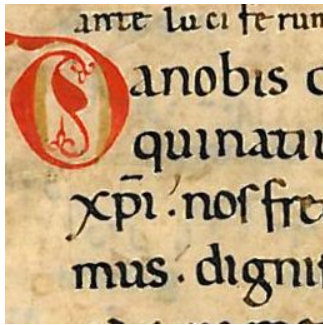 ante luciferum
Da nobis
quinatu
xp̄i. nos fre
mus. digni